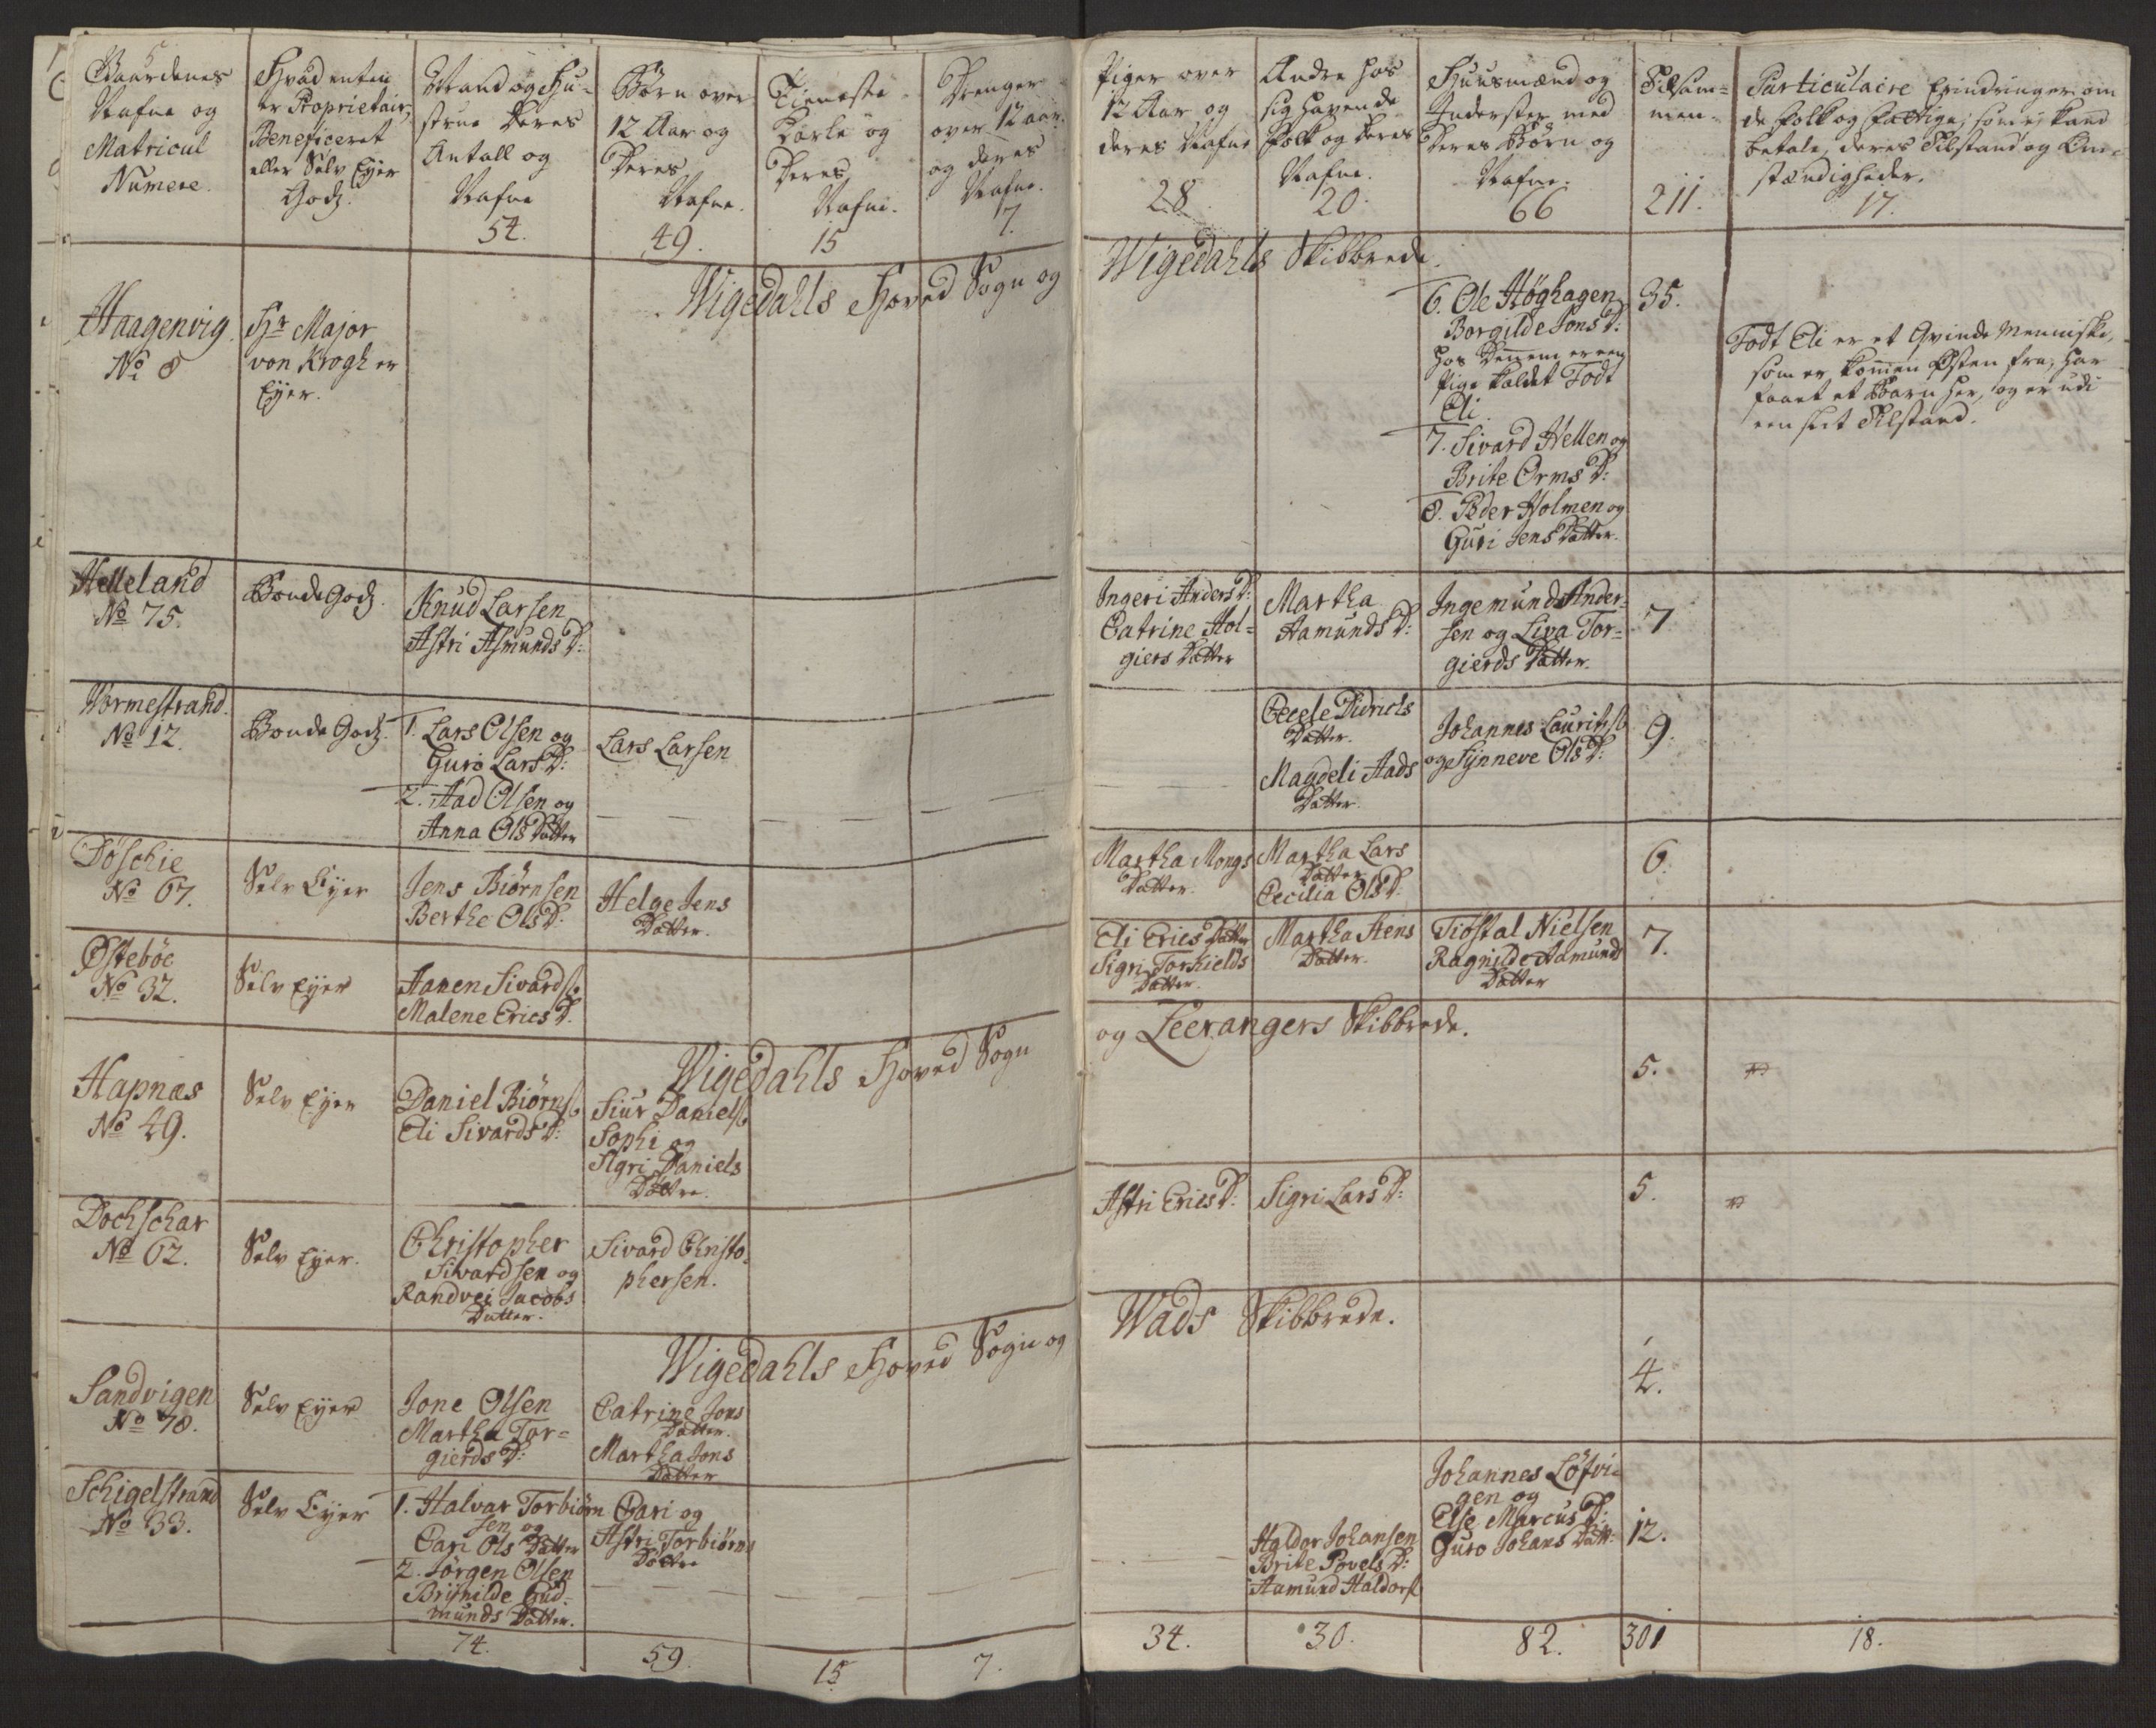 Gaardenes
Nafne og
Matricul
Numere.
Hvad enten
er Proprietair,
Beneficeret
eller Selv Eyer
Godz.
Mand og Hu-
strue Deres
Antall og
Nafne
54.
Börn over
12 Aar og
Deres
Nafne.
49.
Tieneste
Karle og
Deres
Nafne.
15
Drenger
over 12 aar.
og deres
Nafne.
7.
Piger over
12 Aar og
deres Nafne
28.
Andre hos
sig havende
folk og deres
Nafne.
20.
Huusmænd og
Inderster med
Deres Börn og
Nafne.
66
Tilsam-
men.
211.
Particulaire Erindringer om
de folk og fattige, som ej kand
betale, deres Tilstand og Om-
stændigheder.
17.
Wigedahls Hoved Sogn og
Wigedahls Skibbrede.
Haagenvig.
No 8
Hr Major
von Krogh er
Eyer.
6. Ole Høghagen
Borgilde Jons D:
hos Dennem er een
Pige kaldet Todt
Eli.
7. Sivard Hellen og
Brite Orms D:
8. Peder Holmen og
Guri Jens Datter.
35.
Todt Eli er et Qvinde Menniske,
som er kommen Østen fra, har
faaet et Barn her, og er udi
een slet Tilstand.
Helleland
No 75.
Bonde Godz.
Knud Larsen
Astri Asmunds D:
Ingeri Anders D:
Catrine Hol-
giers Datter
Martha
Aamunds D:
Ingemund Ander-
sen og Liva Tor-
gierds Datter.
7
Vormestrand.
No 12.
Bonde Godz.
1. Lars Olsen og
Guro Lars D:
2. Aad Olsen og
Anna Ols Datter
Lars Larsen
Cecele Didrichs
Datter.
Magdeli Aads
Datter.
Johannes Lauritzs.
og Synneve Ols D:
9.
Döschie
No 67.
Selv Eyer
Jens Biörnsen
Berthe Ols D:
Helge Jens
Datter.
Martha Mongs
Datter.
Martha Lars
Datter
Cecilia Ols D:
6.
Østebøe
No 32.
Selv Eyer
Aanen Sivards.
Malene Erics D.
Eli Erics Datter
Sigri Torkields
Datter.
Martha Aens
Datter.
Tiøstal Nielsen
Ragnilde Aamunds
Datter
7.
Wigedahls Hoved Sogn
og Leerangers Skibbrede.
Hapnæs
No 49.
Selv Eyer
Daniel Biörns.
Eli Sivards D:
Siur Daniels.
Sophi og
Sigri Daniels
Døttre.
5.
Dochschar
No 62.
Selv Eyer.
Christopher
Sivardsen og
Randvei Jacobs
Datter.
Sivard Christo-
phersen.
Astri Erics D:
Sigri Lars D:
5.
Wigedahls Hoved Sogn og
Wads Skibbrede.
Sandvigen
No 78.
Selv Eyer
Jone Olsen
Martha Tor-
gierds D:
Catrine Jons
Datter.
Martha Jons
Datter
4.
Schigelstrand
No 33.
Selv Eyer
1. Halvar Torbiörn
sen og
Cari Ols Datter
2. Jörgen Olsen
Brynilde Gud-
munds Datter.
Cari og
Astri Torbiörns
Döttre
Haldor Johansen
Brite Povels D:
Aamund Haldors.
Johannes Löfvi-
gen og
Else Marcus D:
Guro Johans Datt:
12.
74.
59.
15
7.
34.
30.
82.
301
18.